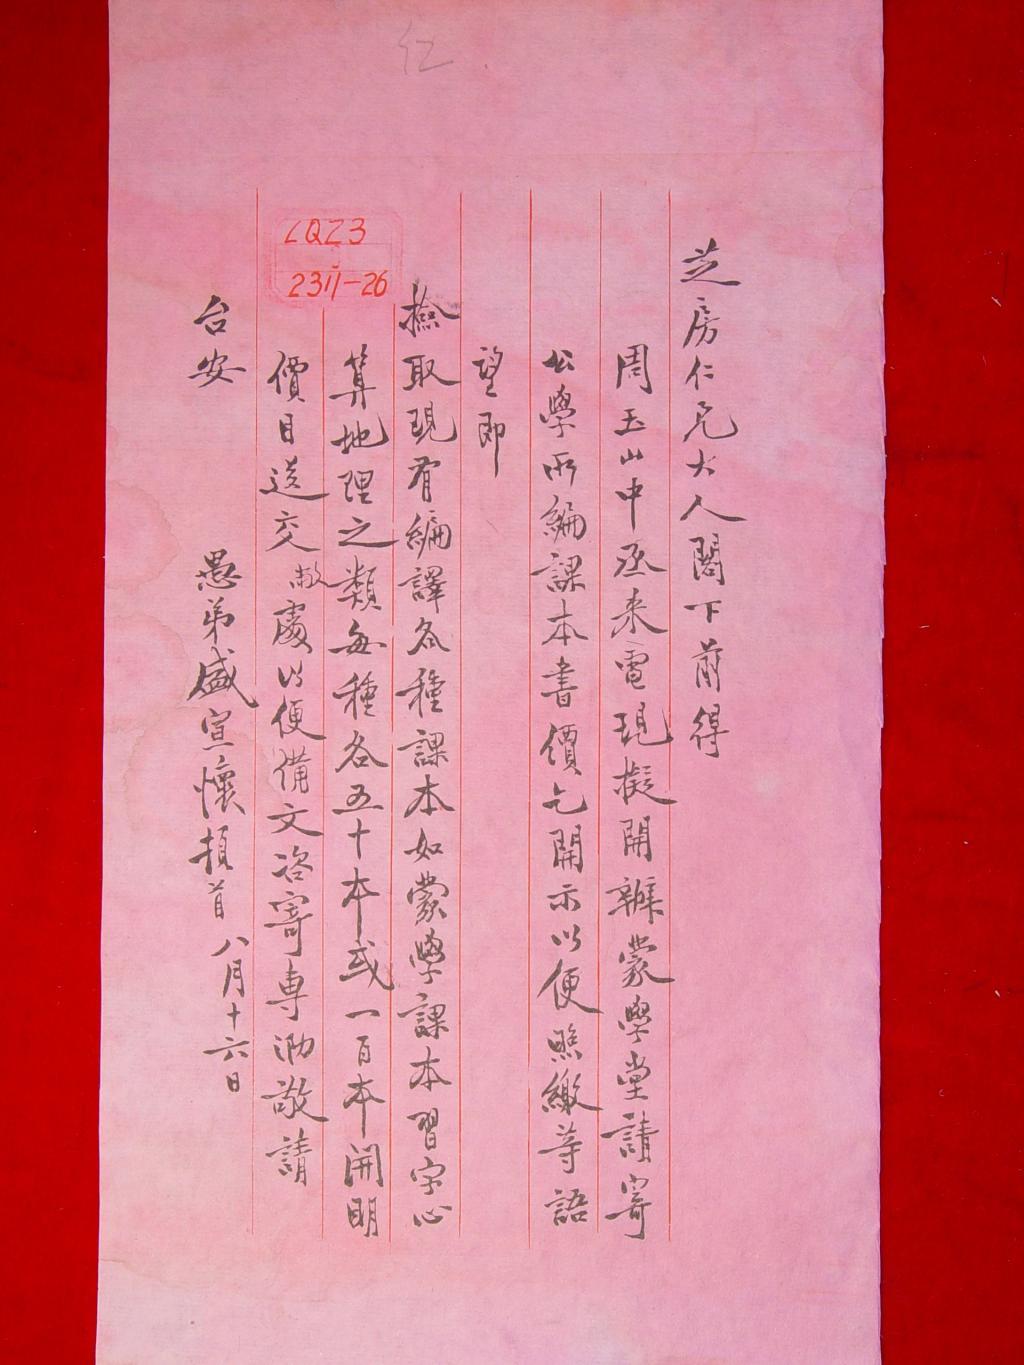 仁
芝房仁兄大人閣下前得
周玉山中丞来電現擬開辦蒙學堂請寄
公學所編課本書價乞開示以便照繳等語
望即
撿取現有編譯各種課本如蒙學課本習字心
算地理之類每種各五十本或一百本開明
價目送交敝處以便備文咨寄專泐敬請
台安
愚弟盛宣懷頓首 八月十六日
LQZ3
2311-26